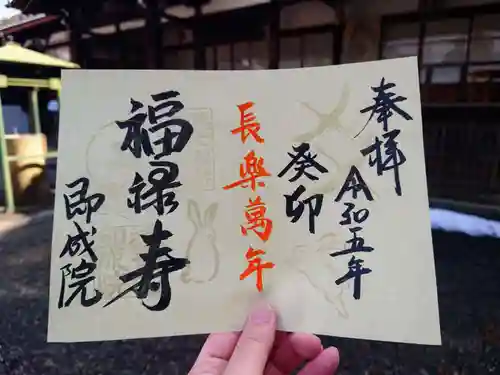 奉拝
令和五年
癸卯
長樂萬年
福禄寿
即成院